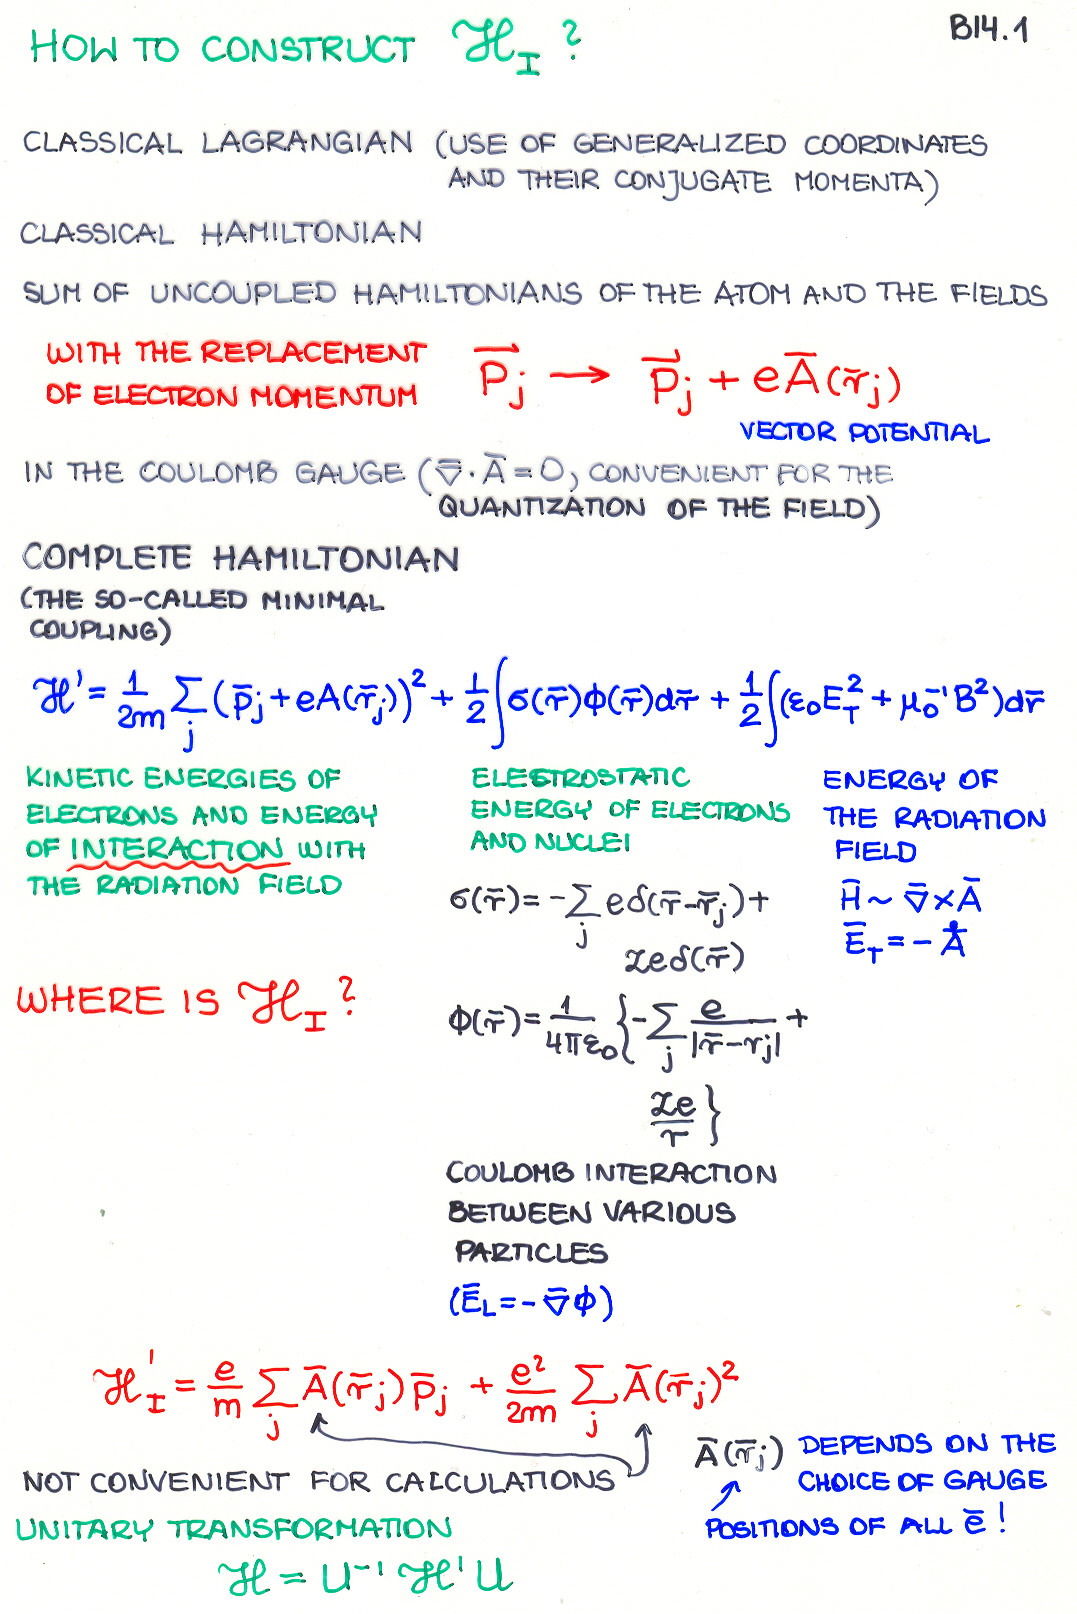 HOW TO CONSTRUCT ℋ_I ?
B14.1
CLASSICAL LAGRANGIAN (USE OF GENERALIZED COORDINATES
AND THEIR CONJUGATE MOMENTA)
CLASSICAL HAMILTONIAN
SUM OF UNCOUPLED HAMILTONIANS OF THE ATOM AND THE FIELDS
WITH THE REPLACEMENT
OF ELECTRON MOMENTUM
p⃗_j → p⃗_j + eA̅(r̅_j)
VECTOR POTENTIAL
IN THE COULOMB GAUGE (∇̅·A̅ = 0, CONVENIENT FOR THE
QUANTIZATION OF THE FIELD)
COMPLETE HAMILTONIAN
(THE SO-CALLED MINIMAL
COUPLING)
ℋ' = 1/2m Σ_j (p̅_j + eA(r̅_j))² + 1/2 ∫σ(r̅)ϕ(r̅)dr̅ + 1/2 ∫(ε₀E_T² + μ₀⁻¹B²)dr̅
KINETIC ENERGIES OF
ELECTRONS AND ENERGY
OF INTERACTION WITH
THE RADIATION FIELD
ELECTROSTATIC
ENERGY OF ELECTRONS
AND NUCLEI
ENERGY OF
THE RADIATION
FIELD
H̅ ~ ∇̅×A̅
E̅_T = - Ȧ̅
σ(r̅) = -Σ_j eδ(r̅-r̅_j) +
Zeδ(r̅)
WHERE IS ℋ_I ?
ϕ(r̅) = 1/4πε₀ {-Σ_j e/|r̅-r_j| +
Ze/r }
COULOMB INTERACTION
BETWEEN VARIOUS
PARTICLES
(E̅_L = - ∇̅ϕ)
ℋ'_I = e/m Σ_j A̅(r̅_j)p̅_j + e²/2m Σ_j A̅(r̅_j)²
NOT CONVENIENT FOR CALCULATIONS
A̅(r̅_j) DEPENDS ON THE
CHOICE OF GAUGE
POSITIONS OF ALL e̅ !
UNITARY TRANSFORMATION
ℋ = U⁻¹ ℋ' U